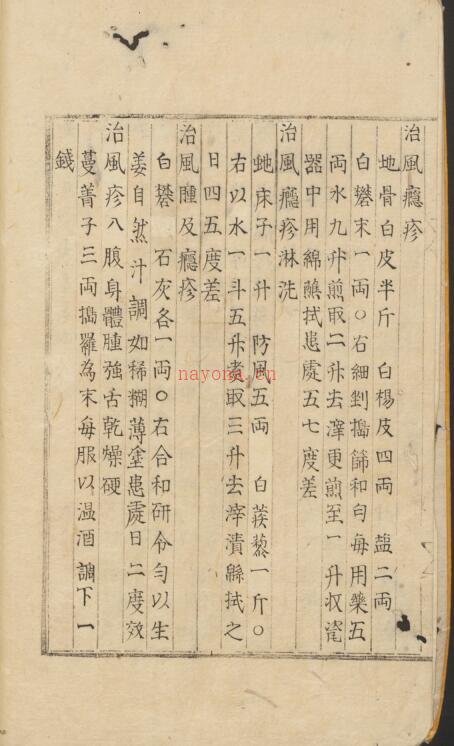 治風癮疹
地骨白皮半斤 白楊皮四両 塩二両
白礬末一両○右細剉擣篩和勻每用藥五
両水九升煎取二升去滓更煎至一升収瓷
器中用綿蘸拭患處五七度差
治風癮疹淋洗
虵床子一升 防風五両 白蒺蔾一斤○
右以水一斗五升煑取三升去滓漬緜拭之
日四五度差
治風腫及癮疹
白礬 石灰各一両○右合和研令勻以生
姜自然汁調如稀糊薄塗患處日二度效
治風疹入腹身體腫強舌乾燥硬
蔓菁子三両擣羅為末每服以温酒調下一
錢
nayona.cn